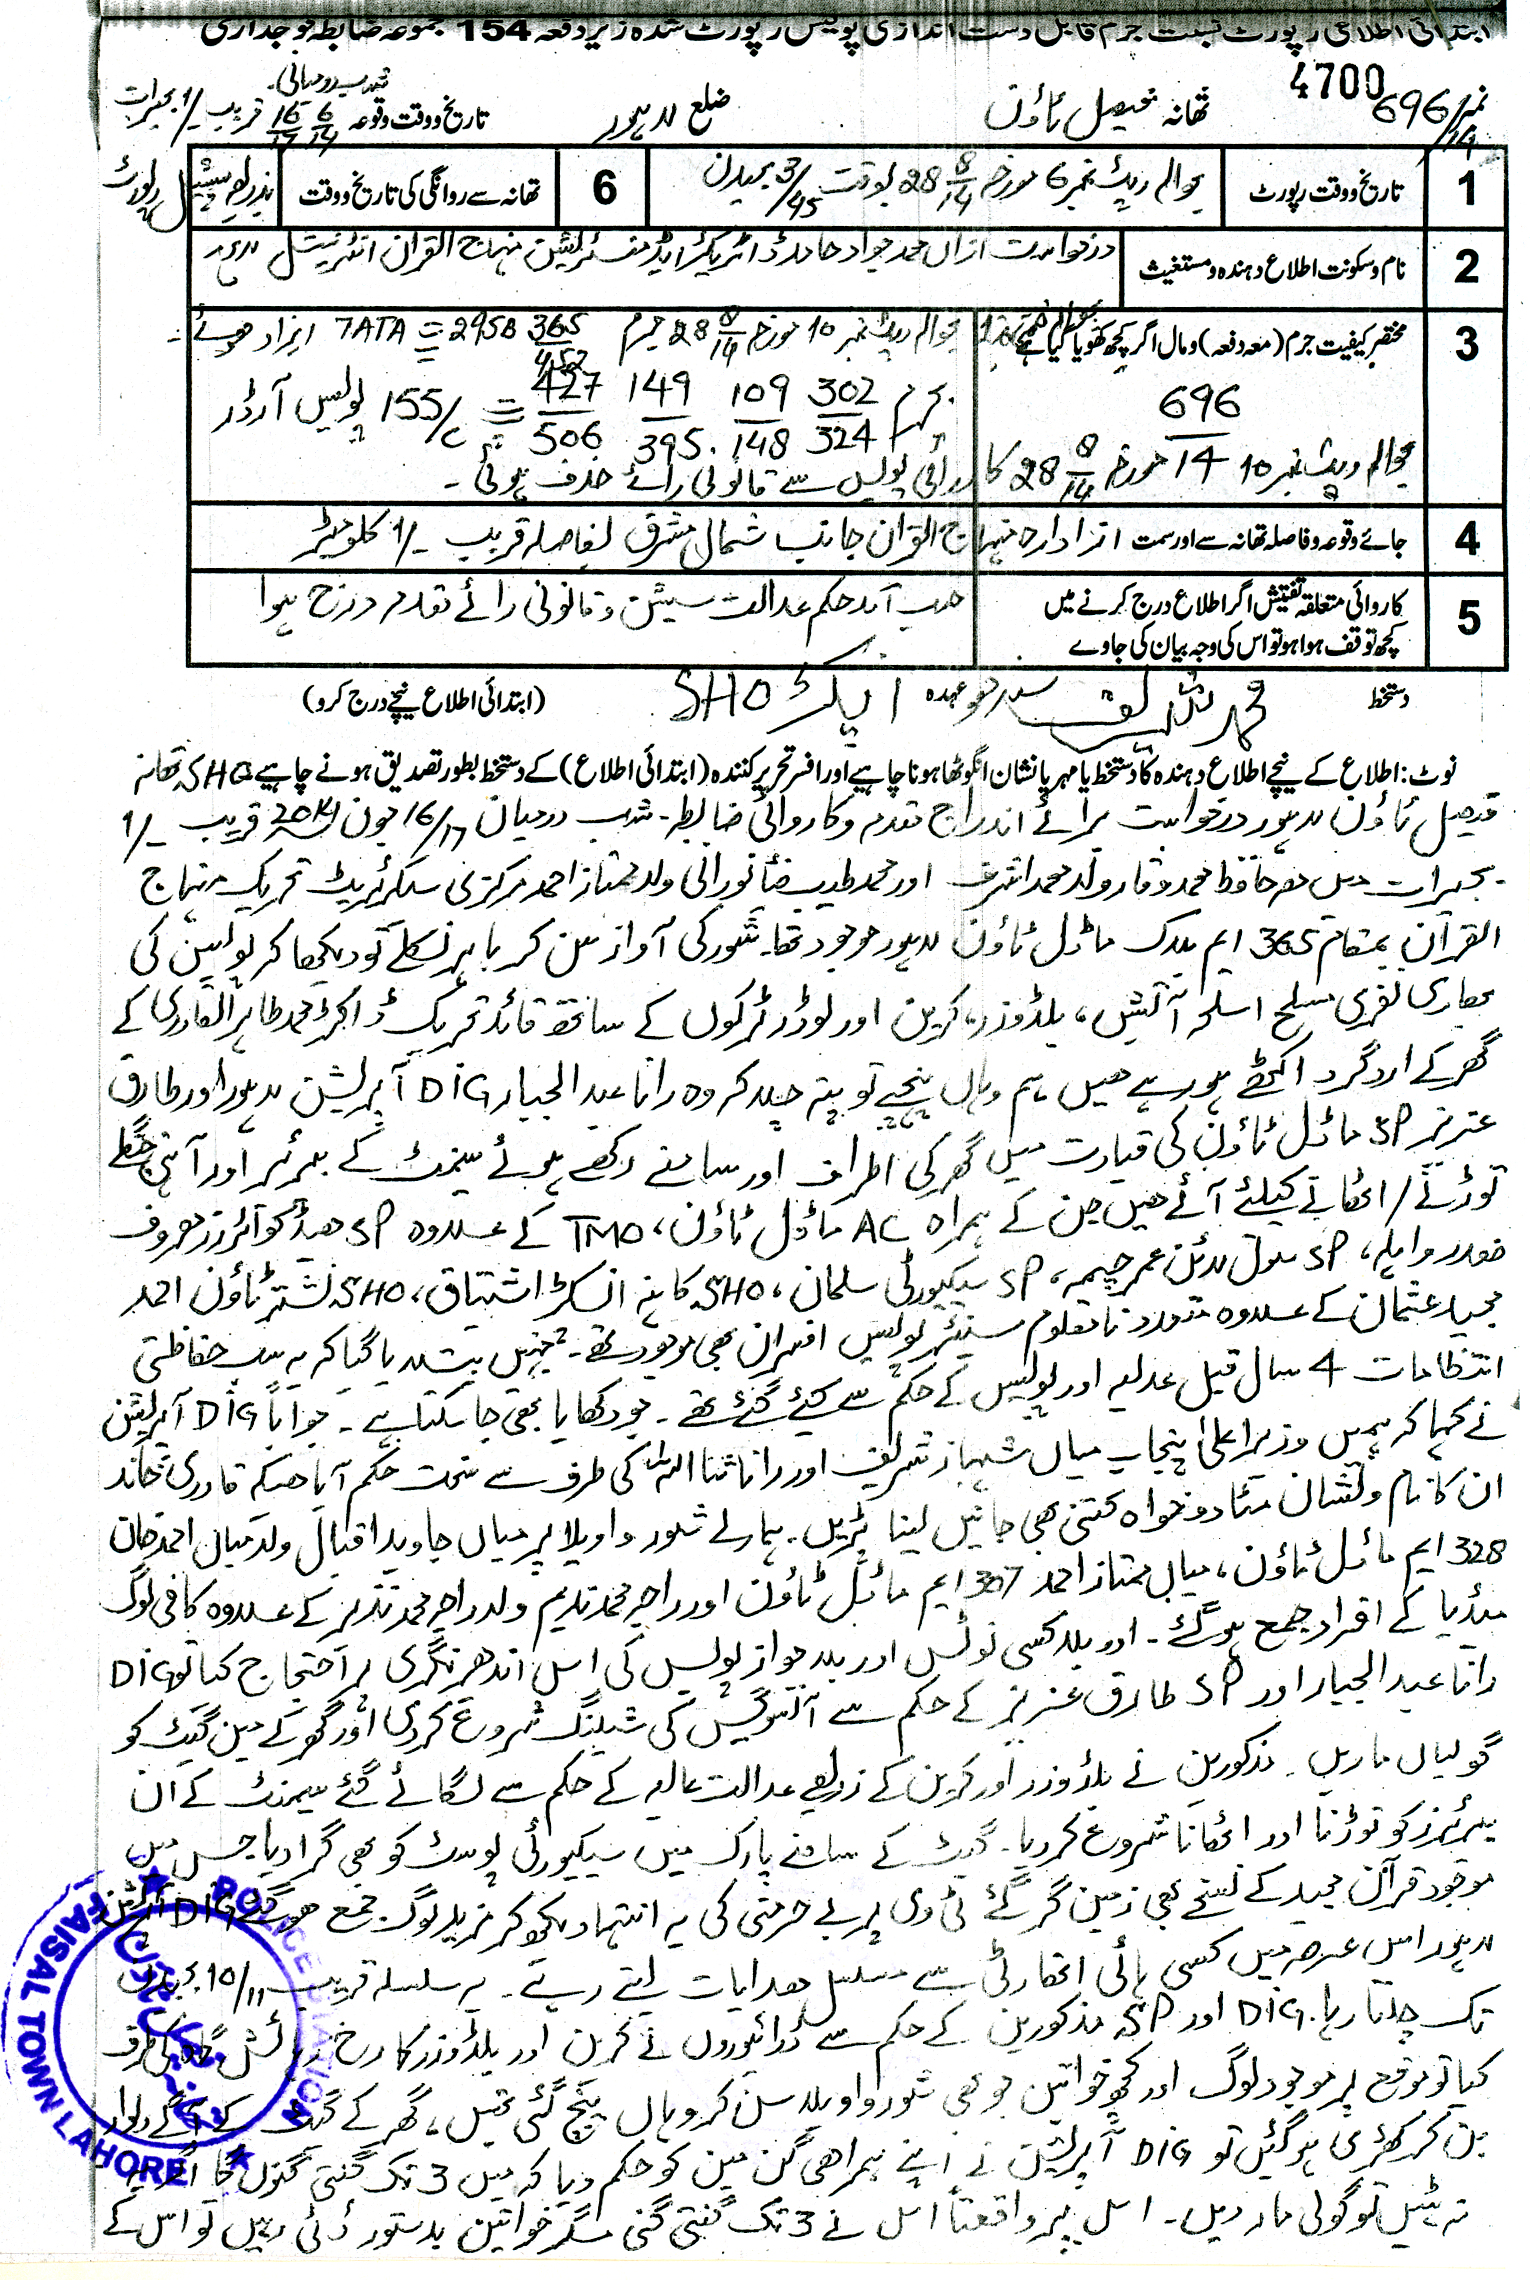 ابتدائی اطلاعی رپورٹ نسبت جرم قابل دست اندازی پولیس رپورٹ شدہ زیر دفعہ 154 مجموعہ ضابطہ فوجداری
4700
نمبر 696/14 تھانہ فیصل ٹاؤن ضلع لاہور تاریخ و وقت وقوعہ 16/17 6/14 قریب 1/- بجے رات
شب درمیانی
1 تاریخ و وقت رپورٹ بحوالہ رپٹ نمبر 6 مورخہ 28 8/14 بوقت 3/45 بجے دن 6 تھانہ سے روانگی کی تاریخ و وقت بذریعہ سپیشل رپورٹ
2 نام و سکونت اطلاع دہندہ و مستغیث درخواست ازاں محمد جواد حامد ڈائریکٹر ایڈمنسٹریشن منہاج القرآن انٹرنیشنل لاہور
3 مختصر کیفیت جرم (معہ دفعہ) و مال اگر کچھ کھویا گیا ہے بحوالہ رپٹ نمبر 10 مورخہ 28 8/14 جرم 365 452 295B 7ATA ایزاد ہوئے
696/14 بجرم 302 324 109 148 149 395 427 506 ت پ 155/C پولیس آرڈر
بحوالہ رپٹ نمبر 10 مورخہ 28 8/14 کارروائی پولیس سے قانونی رائے حذف ہوئی ۔
4 جائے وقوعہ و فاصلہ تھانہ سے اور سمت از ادارہ منہاج القرآن جانب شمال مشرق بفاصلہ قریب 1/- کلومیٹر
5 کاروائی متعلقہ تفتیش اگر اطلاع درج کرنے میں کچھ توقف ہوا ہو تو اس کی وجہ بیان کی جاوے حسب آمد حکم عدالت سیشن و قانونی رائے مقدمہ درج ہوا
دستخط محمد شریف سندھو عہدہ انسپکٹر SHO (ابتدائی اطلاع نیچے درج کرو)
نوٹ: اطلاع کے نیچے اطلاع دہندہ کا دستخط یا مہر یا نشان انگوٹھا ہونا چاہیے اور افسر تحریر کنندہ (ابتدائی اطلاع) کے دستخط بطور تصدیق ہونے چاہیے SHO تھانہ
فیصل ٹاؤن لاہور درخواست برائے اندراج مقدمہ و کاروائی ضابطہ۔ شب درمیان 16/17 جون 2014 قریب 1/-
بجے رات میں معہ حافظ محمد وقار ولد محمد اشرف اور محمد طیب ضیا نورانی ولد ممتاز احمد مرکزی سیکرٹیریٹ تحریک منہاج
القرآن بمقام 365 ایم بلاک ماڈل ٹاؤن لاہور موجود تھا۔ شور کی آواز سن کر باہر نکلے تو دیکھا کہ پولیس کی
بھاری نفری مسلح اسلحہ آتشیں، بلڈوزر، کرین اور لوڈر ٹرکوں کے ساتھ قائد تحریک ڈاکٹر محمد طاہر القادری کے
گھر کے ارد گرد اکٹھے ہو رہے ہیں ہم وہاں پہنچے تو پتہ چلا کہ وہ رانا عبدالجبار DIG آپریشن لاہور اور طارق
عزیز SP ماڈل ٹاؤن کی قیادت میں گھر کی اطراف اور سامنے رکھے ہوئے سیمنٹ کے بیرئر اور آہنی جنگلے
توڑنے / اٹھانے کیلئے آئے ہیں جن کے ہمراہ AC ماڈل ٹاؤن، TMO کے علاوہ SP ھیڈ کوارٹرز معروف
صفدر واہلہ، SP سول لائن عمر چیمہ، SP سیکیورٹی سلمان، SHO کاہنہ انسپکٹر اشتیاق، SHO نشتر ٹاؤن احمد
مجید عثمان کے علاوہ متعدد نامعلوم سینئر پولیس افسران بھی موجود تھے۔ جنہیں بتلایا گیا کہ یہ سب حفاظتی
انتظامات 4 سال قبل عدلیہ اور پولیس کے حکم سے کیئے گئے تھے۔ جو دکھایا بھی جا سکتا ہے۔ جواباً DIG آپریشن
نے کہا کہ ہمیں وزیر اعلیٰ پنجاب میاں شہباز شریف اور رانا ثناءاللہ کی طرف سے سخت حکم آیا ھیکہ قادری خاندان
ان کا نام و نشان مٹا دو خواہ کتنی بھی جانیں لینا پڑیں۔ ہمارے شور واویلا پر میاں جاوید اقبال ولد میاں احمد خان
328 ایم ماڈل ٹاؤن، میاں ممتاز احمد 307 ایم ماڈل ٹاؤن اور راجہ محمد ندیم ولد راجہ محمد نذیر کے علاوہ کافی لوگ
میڈیا کے افراد جمع ہو گئے۔ اور بلا کسی نوٹس اور بلا جواز پولیس کی اس اندھیر نگری پر احتجاج کیا تو DIG
رانا عبدالجبار اور SP طارق عزیز کے حکم سے آنسو گیس کی شیلنگ شروع کر دی اور گھر کے مین گیٹ کو
گولیاں ماریں۔ مذکورین نے بلڈوزر اور کرین کے ذریعے عدالت عالیہ کے حکم سے لگائے گئے سیمنٹ کے ان
بیرئرز کو توڑنا اور اٹھانا شروع کر دیا۔ گیٹ کے سامنے پارک میں سیکیورٹی پوسٹ کو بھی گرا دیا جس میں
موجود قرآن مجید کے نسخے بھی زمین گر گئے ٹی وی پر بے حرمتی کی یہ انتہا دیکھ کر مزید لوگ جمع ہو گئے DIG آپریشن
لاہور اس عرصہ میں کسی ہائی اتھارٹی سے مسلسل ھدایات لیتے رہے۔ یہ سلسلہ قریب 10/11 بجے دن
تک چلتا رہا۔ DIG اور SP مذکورین کے حکم سے ڈرائیوروں نے کرین اور بلڈوزر کا رخ رہائش گاہ کی طرف
کیا تو موقع پر موجود لوگ اور کچھ خواتین جو بھی شور و واویلا سن کر وہاں پہنچ گئی تھیں، گھر کے گیٹ کے آگے دیوار
بن کر کھڑی ہو گئیں تو DIG آپریشن نے اپنے ہمراھی گن مین کو حکم دیا کہ میں 3 تک گنتی گنوں گا اگر یہ
نہ ہٹیں تو گولی مار دیں۔ اس پر واقعتاً اس نے 3 تک گنتی گنی مگر خواتین بدستور ڈٹی رہیں تو اس کے
POLICE STATION
FAISAL TOWN LAHORE